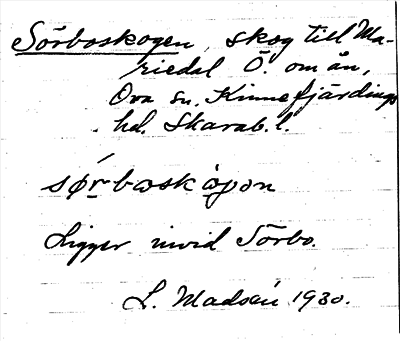 Sörboskogen, skog till Ma-
riedal Ö. om ån,
Ova sn. Kinnefjärdings
hd. Skarab. l.
sǿrbωskògωn
Ligger invid Sörbo.
L. Madsén 1930.